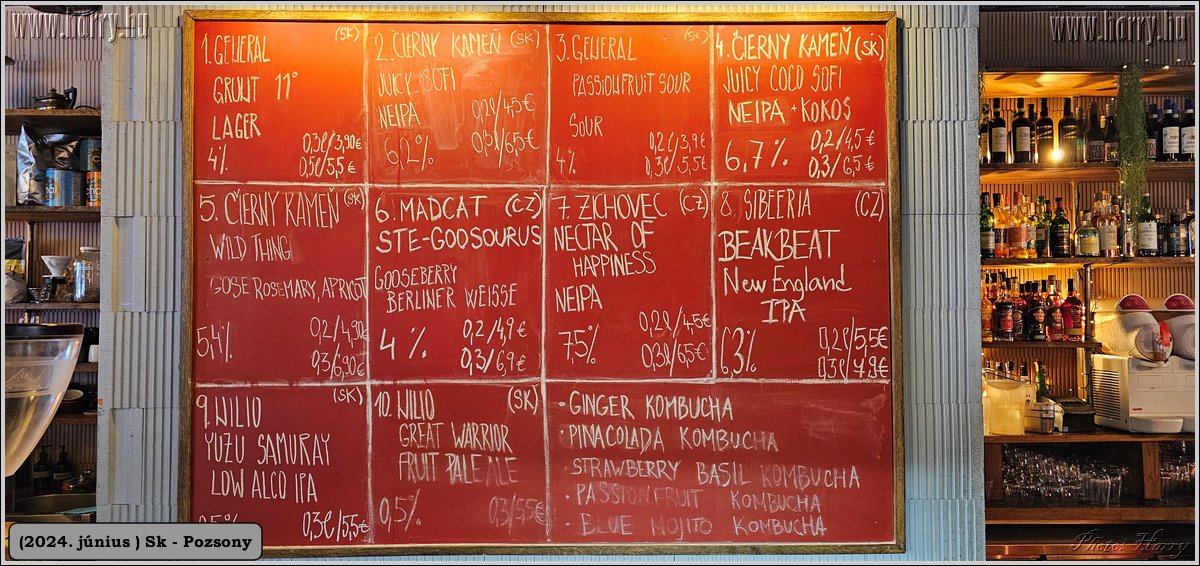 www.horry.hu
www.horry.hu
1. GENERAL (SK)
GRUNT 11°
LAGER
0,3l/3,90€
4% 0,5l/5,5€
2. ČIERNY KAMEŇ (SK)
JUICY SOFI
NEIPA 0,2l/4,5€
6,2% 0,3l/6,5€
3. GENERAL (SK)
PASSIONFRUIT SOUR
SOUR
0,2l/3,9€
4% 0,3l/5,5€
4. ČIERNY KAMEŇ (SK)
JUICY COCO SOFI
NEIPA + KOKOS
0,2l/4,5€
6,7% 0,3/6,5€
5. ČIERNY KAMEŇ (SK)
WILD THING
GOSE ROSEMARY, APRICOT
0,2/4,90€
5,4% 0,3/6,90€
6. MADCAT (CZ)
STE-GOOSOURUS
GOOSEBERRY
BERLINER WEISSE
0,2/4,9€
4% 0,3/6,9€
7. ZICHOVEC (CZ)
NECTAR OF
HAPPINESS
NEIPA
0,2l/4,5€
7,5% 0,3l/6,5€
8. SIBEERIA (CZ)
BEAKBEAT
New England
IPA
0,2l/5,5€
6,3% 0,3l/7,9€
9. WILIO (SK)
YUZU SAMURAY
LOW ALCO IPA
0,3l/5,5€
10. WILIO (SK)
GREAT WARRIOR
FRUIT PALE ALE
0,5% 0,3/5,5€
• GINGER KOMBUCHA
• PINACOLADA KOMBUCHA
• STRAWBERRY BASIL KOMBUCHA
• PASSIONFRUIT KOMBUCHA
• BLUE MOJITO KOMBUCHA
(2024. június ) Sk - Pozsony
Photo: Harry